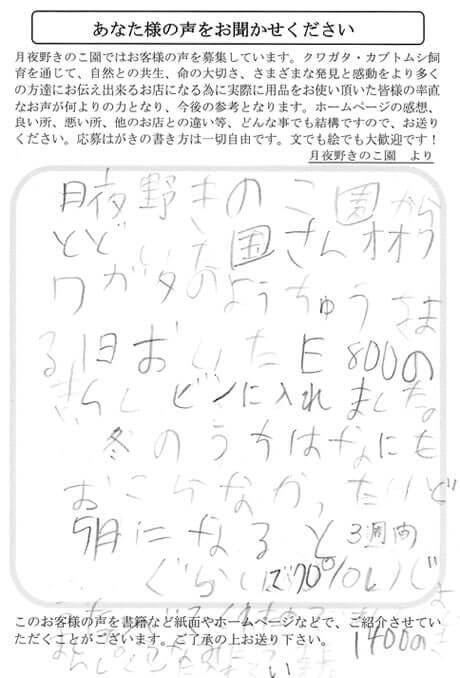 あなた様の声をお聞かせください
月夜野きのこ園ではお客様の声を募集しています。クワガタ・カブトムシ飼
育を通じて、自然との共生、命の大切さ、さまざまな発見と感動をより多く
の方達にお伝え出来るお店になる為に実際に用品をお使い頂いた皆様の率直
なお声が何よりの力となり、今後の参考となります。ホームページの感想、
良い所、悪い所、他のお店との違い等、どんな事でも結構ですので、お送り
ください。応募はがきの書き方は一切自由です。文でも絵でも大歓迎です！
月夜野きのこ園　より
月夜野きのこ園から
とどいた国さんオオク
ワガタのようちゅう
る1日おいたE800の
ビンに入れました。
冬のうちはなにも
おこらなかったけど
5月になると3週間
ぐらいで70%いじ
このお客様の声を書籍など紙面やホームページなどで、ご紹介させてい
ただくことがございます。ご了承の上お送り下さい。
1400の
い